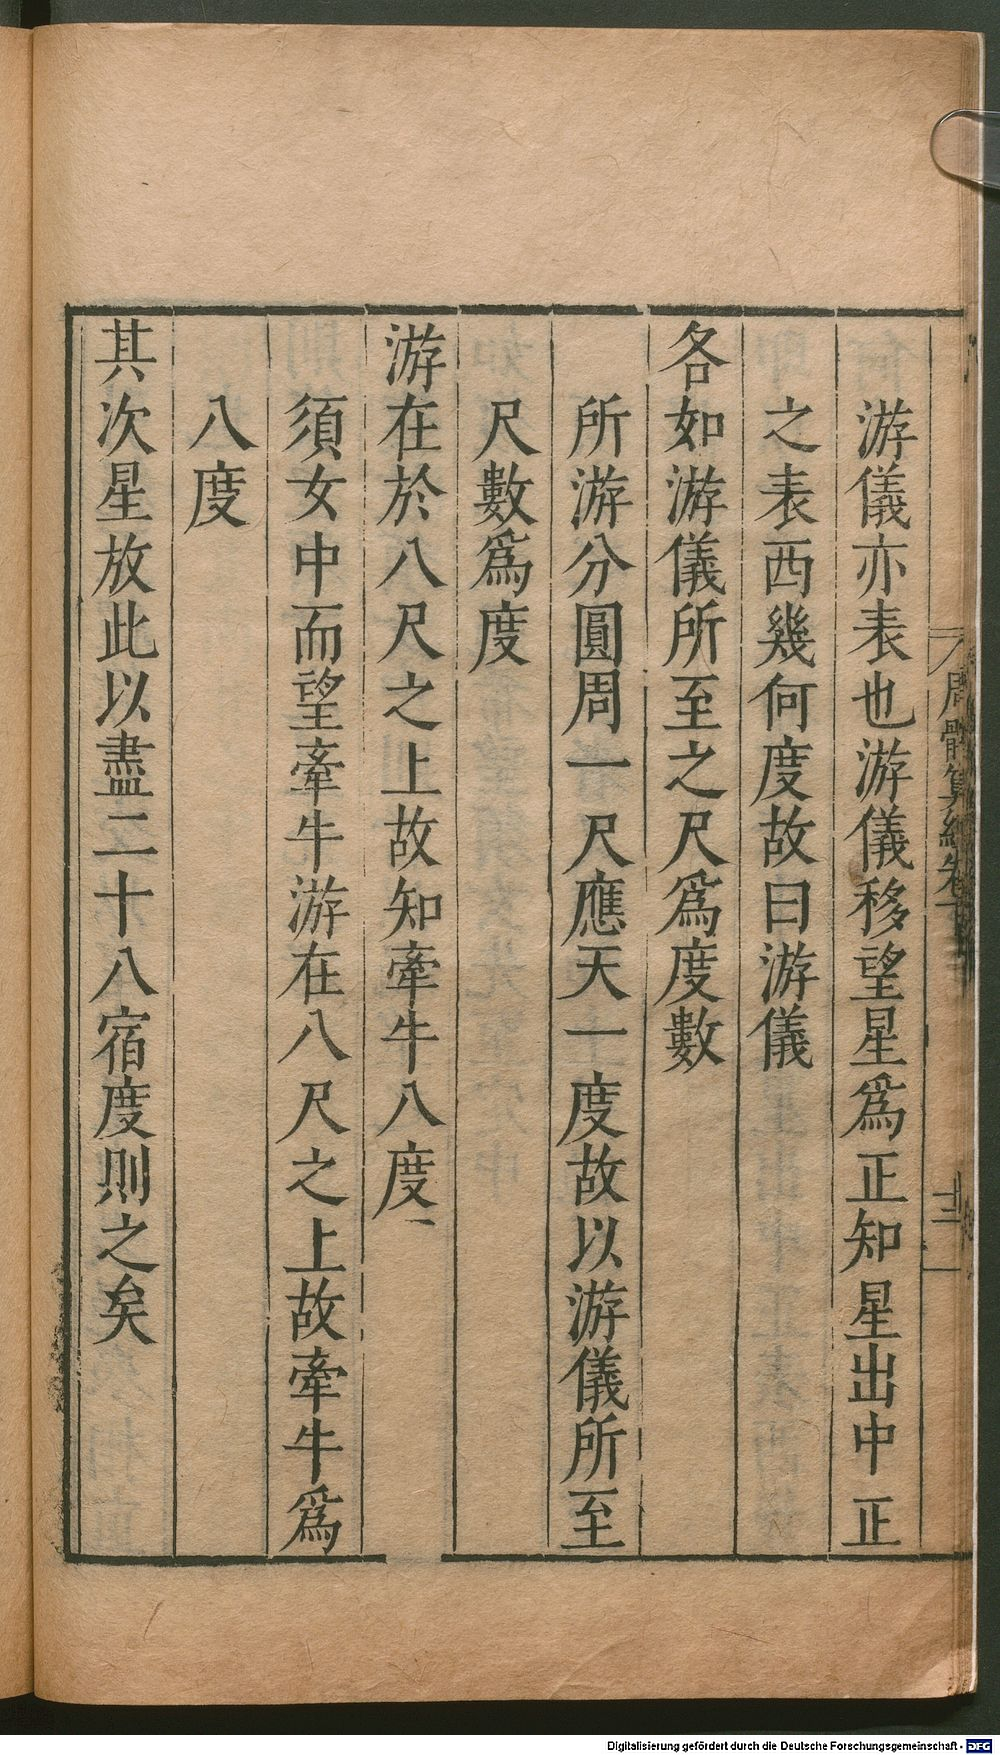 游儀亦表也游儀移望星爲正知星出中正
之表西幾何度故曰游儀
各如游儀所至之尺爲度數
所游分圓周一尺應天一度故以游儀所至
尺數爲度
游在於八尺之上故知牽牛八度
須女中而望牽牛游在八尺之上故牽牛爲
八度
其次星放此以盡二十八宿度則之矣
周髀算經卷
Digitalisierung gefördert durch die Deutsche Forschungsgemeinschaft - DFG